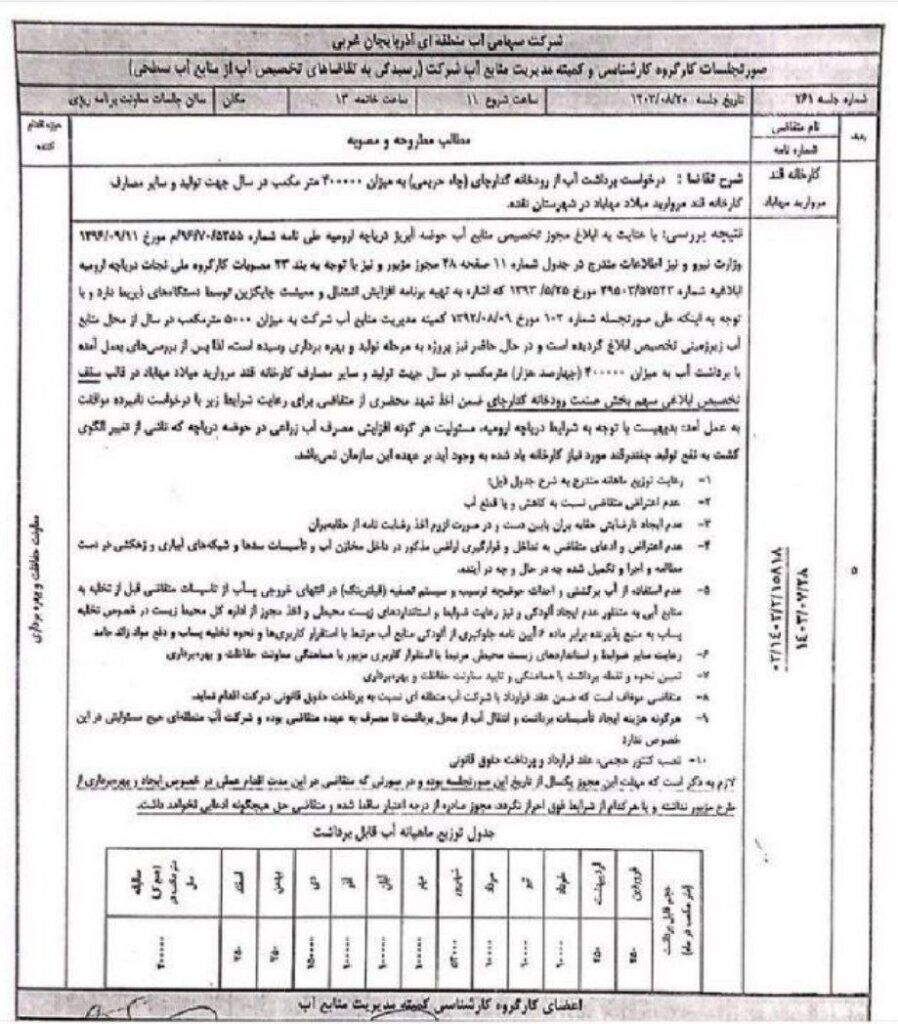 شرکت سهامی آب منطقه ای آذربایجان غربی
صورتجلسات کارگروه کارشناسی و کمیته مدیریت منابع آب شرکت (رسیدگی به تقاضاهای تخصیص آب از منابع آب سطحی)
شماره جلسه ۲۶۱ تاریخ جلسه ۱۴۰۳/۰۸/۲۰ ساعت شروع ۱۱ ساعت خاتمه ۱۳ مکان سالن جلسات معاونت برنامه ریزی
ردیف نام متقاضی شماره نامه مطالب مطروحه و مصوبه حوزه اقدام کننده
کارخانه قند مروارید مهاباد
شرح تقاضا : درخواست برداشت آب از رودخانه گدارچای (چاه حریمی) به میزان ۴۰۰۰۰۰ متر مکعب در سال جهت تولید و سایر مصارف
کارخانه قند مروارید میلاد مهاباد در شهرستان نقده.
نتیجه بررسی: با عنایت به ابلاغ مجوز تخصیص منابع آب حوضه آبریز دریاچه ارومیه طی نامه شماره ۹۶/۷۰/۵۳۵۵/م مورخ ۱۳۹۶/۰۹/۱۱
وزارت نیرو و نیز اطلاعات مندرج در جدول شماره ۱۱ صفحه ۲۸ مجوز مزبور و نیز با توجه به بند ۲۳ مصوبات کارگروه ملی نجات دریاچه ارومیه
ابلاغیه شماره ۲۹۵۰۳/۵۷۵۲۳ مورخ ۱۳۹۳/۵/۲۵ که اشاره به تهیه برنامه افزایش اشتغال و معیشت جایگزین توسط دستگاه‌های ذیربط دارد و با
توجه به اینکه طی صورتجلسه شماره ۱۰۳ مورخ ۱۳۹۲/۰۸/۰۹ کمیته مدیریت منابع آب شرکت به میزان ۵۰۰۰ مترمکعب در سال از محل منابع
آب زیرزمینی تخصیص ابلاغ گردیده است و در حال حاضر نیز پروژه به مرحله تولید و بهره برداری رسیده است، لذا پس از بررسی‌های بعمل آمده
با برداشت آب به میزان ۴۰۰۰۰۰ (چهارصد هزار) مترمکعب در سال جهت تولید و سایر مصارف کارخانه قند مروارید میلاد مهاباد در قالب سقف
تخصیص ابلاغی سهم بخش صنعت رودخانه گدارچای ضمن اخذ تعهد محضری از متقاضی برای رعایت شرایط زیر با درخواست نامبرده موافقت
به عمل آمد؛ بدیهیست با توجه به شرایط دریاچه ارومیه، مسئولیت هر گونه افزایش مصرف آب زراعی در حوضه دریاچه که ناشی از تغییر الگوی
کشت به نفع تولید چغندرقند مورد نیاز کارخانه یاد شده به وجود آید بر عهده این سازمان نمی‌باشد.
۱- رعایت توزیع ماهانه مندرج به شرح جدول ذیل؛
۲- عدم اعتراض متقاضی نسبت به کاهش و یا قطع آب
۳- عدم ایجاد نارضایتی حقابه بران پایین دست و در صورت لزوم اخذ رضایت نامه از حقابه‌بران
۴- عدم اعتراض و ادعای متقاضی به تداخل و قرارگیری اراضی مذکور در داخل مخازن آب و تأسیسات سدها و شبکه‌های آبیاری و زهکشی در دست
مطالعه و اجرا و تکمیل شده چه در حال و چه در آینده.
۵- عدم استفاده از آب برگشتی و احداث حوضچه ترسیب و سیستم تصفیه (فیلترینگ) در انتهای خروجی پساب از تاسیسات متقاضی قبل از تخلیه به
منابع آبی به منظور عدم ایجاد آلودگی و نیز رعایت ضوابط و استانداردهای زیست محیطی و اخذ مجوز از اداره کل محیط زیست در خصوص تخلیه
پساب به منبع پذیرنده برابر ماده ۶ آیین نامه جلوگیری از آلودگی منابع آب مرتبط با استقرار کاربری‌ها و نحوه تخلیه پساب و دفع مواد زائد جامد
۶- رعایت سایر ضوابط و استانداردهای زیست محیطی مرتبط با استقرار کاربری مزبور با هماهنگی معاونت حفاظت و بهره‌برداری
۷- تعیین نحوه و نقطه برداشت با هماهنگی و تایید معاونت حفاظت و بهره‌برداری
۸- متقاضی موظف است که ضمن عقد قرارداد با شرکت آب منطقه ای نسبت به پرداخت حقوق قانونی شرکت اقدام نماید.
۹- هرگونه هزینه ایجاد تأسیسات برداشت و انتقال آب از محل برداشت تا مصرف به عهده متقاضی بوده و شرکت آب منطقه‌ای هیچ مسئولیتی در این
خصوص ندارد
۱۰- نصب کنتور حجمی، عقد قرارداد و پرداخت حقوق قانونی
لازم به ذکر است که مهلت این مجوز یکسال از تاریخ این صورتجلسه بوده و در صورتی که متقاضی در این مدت اقدام عملی در خصوص ایجاد و بهره‌برداری از
طرح مزبور نداشته و یا هرکدام از شرایط فوق احراز نگردد، مجوز صادره از درجه اعتبار ساقط شده و متقاضی حق هیچگونه ادعایی نخواهد داشت.
۵
۰۳/۱۴۰۲/۲/۱۵۸۱۸
۱۴۰۳/۰۷/۲۸
معاونت حفاظت و بهره برداری
جدول توزیع ماهیانه آب قابل برداشت
حجم قابل برداشت (متر مکعب در ماه) فروردین اردیبهشت خرداد تیر مرداد شهریور مهر آبان آذر دی بهمن اسفند سالیانه (جمع کل) متر مکعب در سال
۲۵۰ ۲۵۰ ۵۳۰۰۰ ۱۰۰۰۰۰ ۱۵۰۰۰ ۲۵۰ ۲۵۰ ۴۰۰۰۰۰
اعضای کارگروه کارشناسی کمیته مدیریت منابع آب